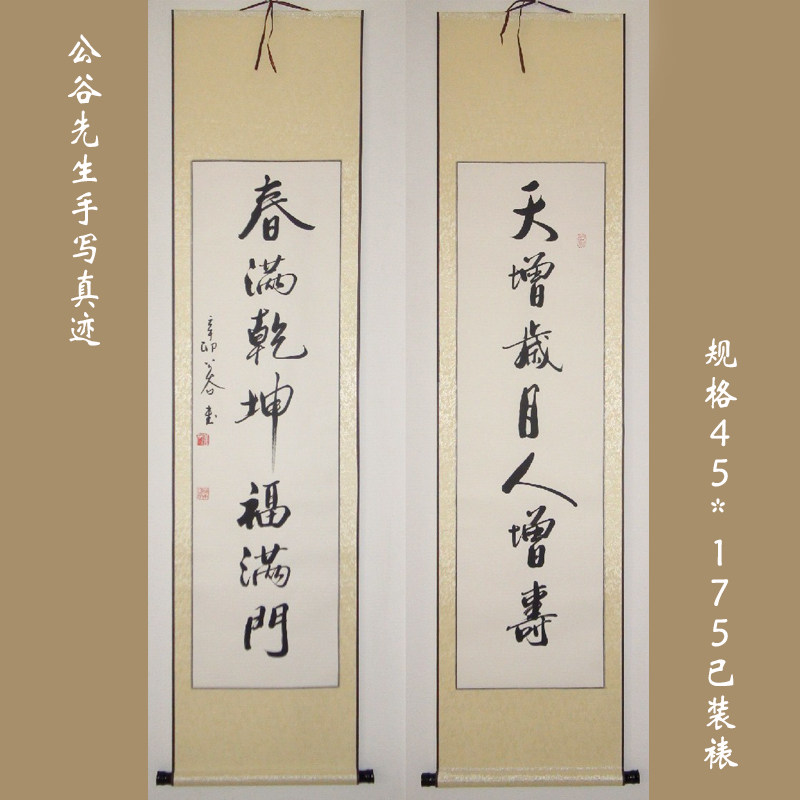 公谷先生手写真迹
天增歲月人增壽
春滿乾坤福滿門
辛卯公谷書
规格45*175已装裱